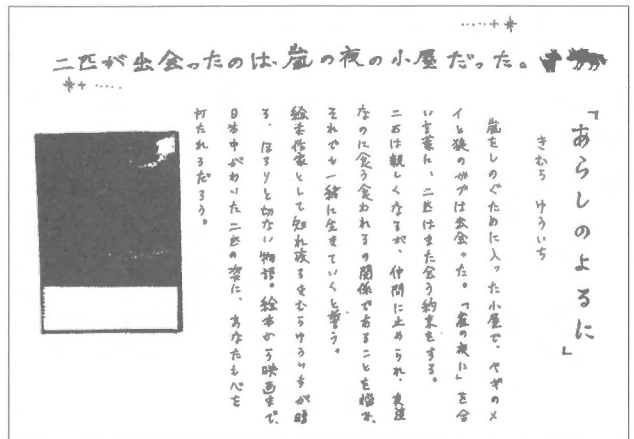 二匹が出会ったのは、嵐の夜の小屋だった。
「あらしのよるに」
きむら ゆういち
嵐をしのぐために入った小屋で、ヤギのメ
イと狼のガブは出会った。「嵐の夜に」を合
い言葉に、二匹はまた会う約束をする。
二匹は親しくなるが、仲間に止められ、友達
なのに食う食われるの関係であることを悩む。
それでも一緒に生きていくと誓う。
絵本作家として知れ渡るきむらゆういちが贈
る、ほろりと切ない物語。絵本から映画まで、
日本中がわいた二匹の姿に、あなたも心を
打たれるだろう。